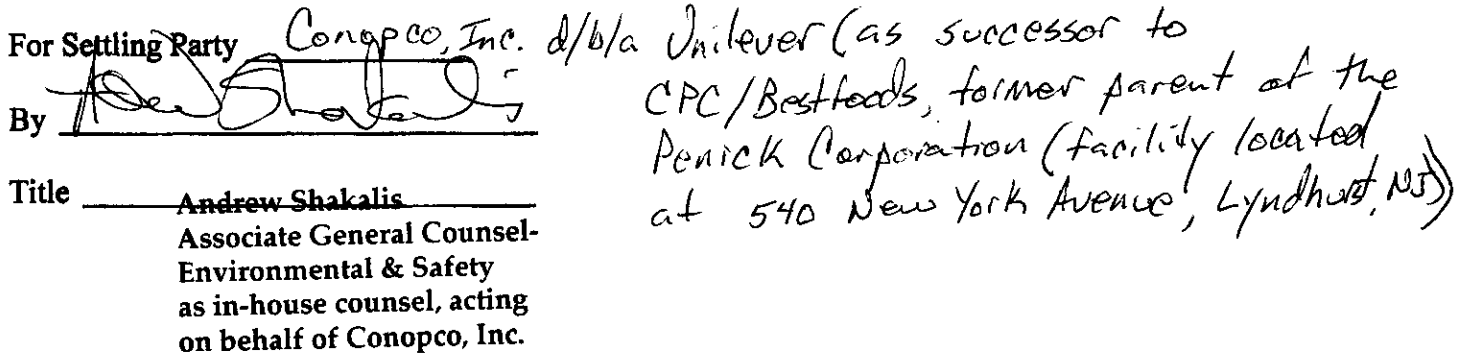 For Settling Party Conopco, Inc. d/b/a Unilever (as successor to
CPC/Bestfoods, former parent of the
By
Penick Corporation (facility located
at 540 New York Avenue, Lyndhurst, NJ))
Title Andrew Shakalis
Associate General Counsel-
Environmental & Safety
as in-house counsel, acting
on behalf of Conopco, Inc.